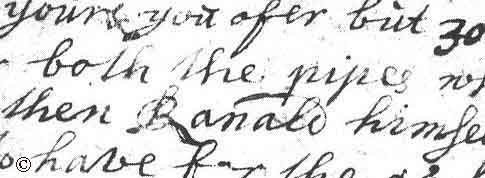 yours you ofer but 30
both the pipes
then Ranald himse
© to have for the